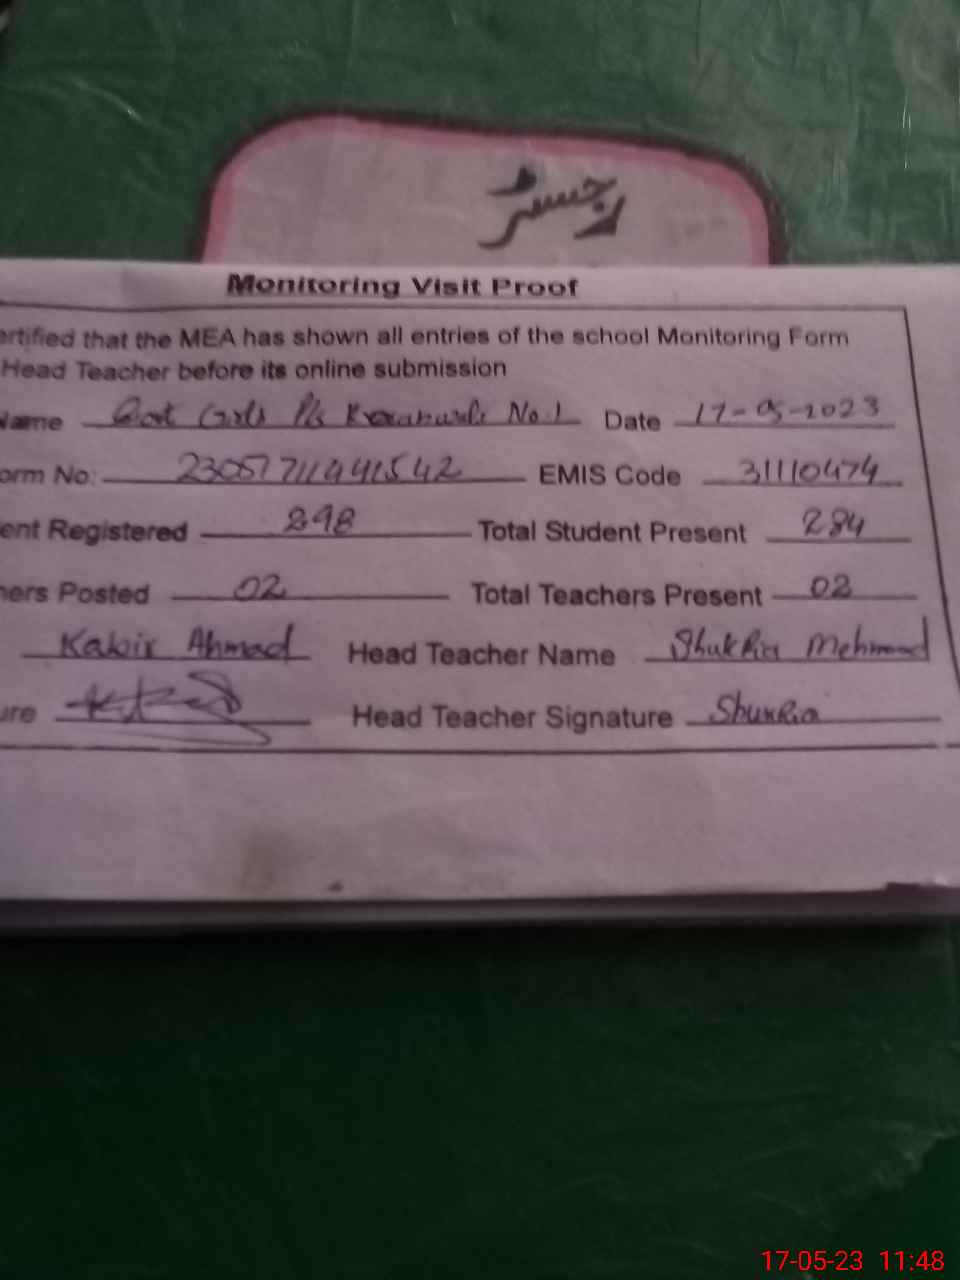 رجسٹر
Monitoring Visit Proof
ertified that the MEA has shown all entries of the school Monitoring Form
Head Teacher before its online submission
Name Govt Girls P/s No.1 Date 17-05-2023
orm No: EMIS Code 31110474
ent Registered 298 Total Student Present 284
hers Posted 02 Total Teachers Present 02
Kabir Ahmad Head Teacher Name Shukria Mehmood
ure Head Teacher Signature Shukria
17-05-23 11:48